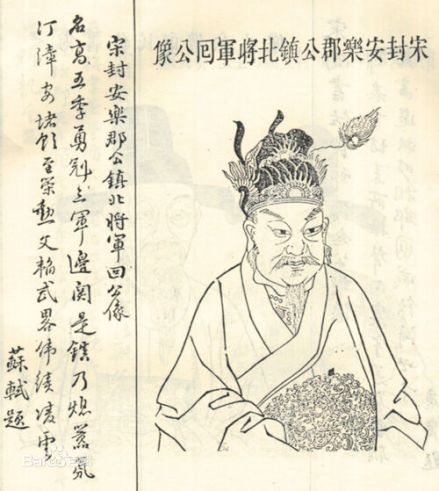 宋封安樂郡公鎮北將軍囘公像
宋封安樂郡公鎮北將軍回公像
名高五季勇冠三軍邊関是鎮乃熄氛
汀漳安堵飲至策勳文韜武畧偉績凌雲
蘇軾題
Baidu百科